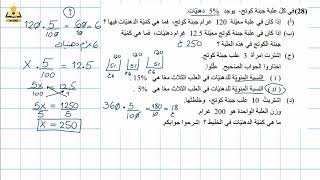 (28) في كلّ علبة جبنة كوتج، يوجد 5% دهنيّات.
(أ) إذا كان في علبة معيّنة 120 غرام جبنة كوتج، فما هي كميّة الدهنيّات فيها؟
(ب) إذا كان في علبة معيّنة 12.5 غرام دهنيّات، فما هي كميّة جبنة كوتج في هذه العلبة؟ 250
(ج) اشترت امرأة 3 علب جبنة كوتج.
اختاروا الجواب الصحيح. علّلوا.
i النسبة المئويّة للدهنيّات في العلب الثلاث معًا هي 15%.
ii النسبة المئويّة للدهنيّات في العلب الثلاث معًا هي 5%.
(د) اشتريتُ 10 علب جبنة كوتج، وخلطتها.
وزن العلبة الواحدة هو 200 غرام.
ما هي كميّة الدهنيّات في الخليط؟ اشرحوا جوابكم.
120 · 5/100 = 60/10 = 6
X · 5/100 = 12.5
5X/100 = 12.5
5X = 1250
X = 250
360 · 5/100 = 180/10 = 18